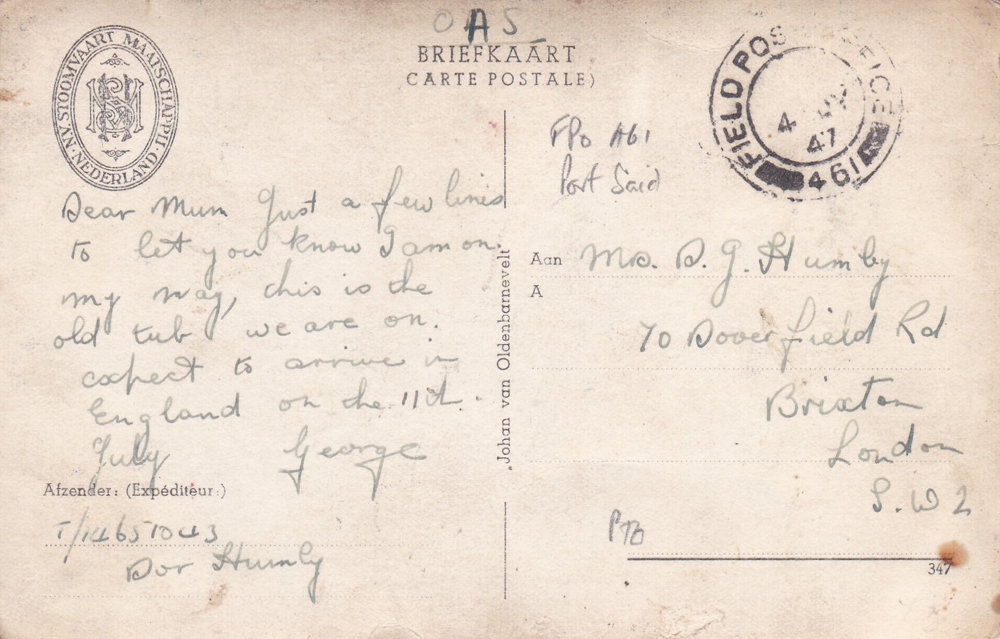 OAS
BRIEFKAART
CARTE POSTALE)
N.V. STOOMVAART MAATSCHAPPIJ · NEDERLAND ·
SMN
FIELD POST OFFICE
4
47
461
FPO A61
Port Said
Dear Mum Just a few lines
to let you know I am on
my way, this is the
old tub we are on.
expect to arrive in
England on the 11th.
July George
Afzender: (Expéditeur:)
T/14651043
Dvr Humby
„Johan van Oldenbarnevelt"
Aan Mrs. D. G. Humby
A
70 Doverfield Rd
Brixton
London
S.W 2
PTO
347